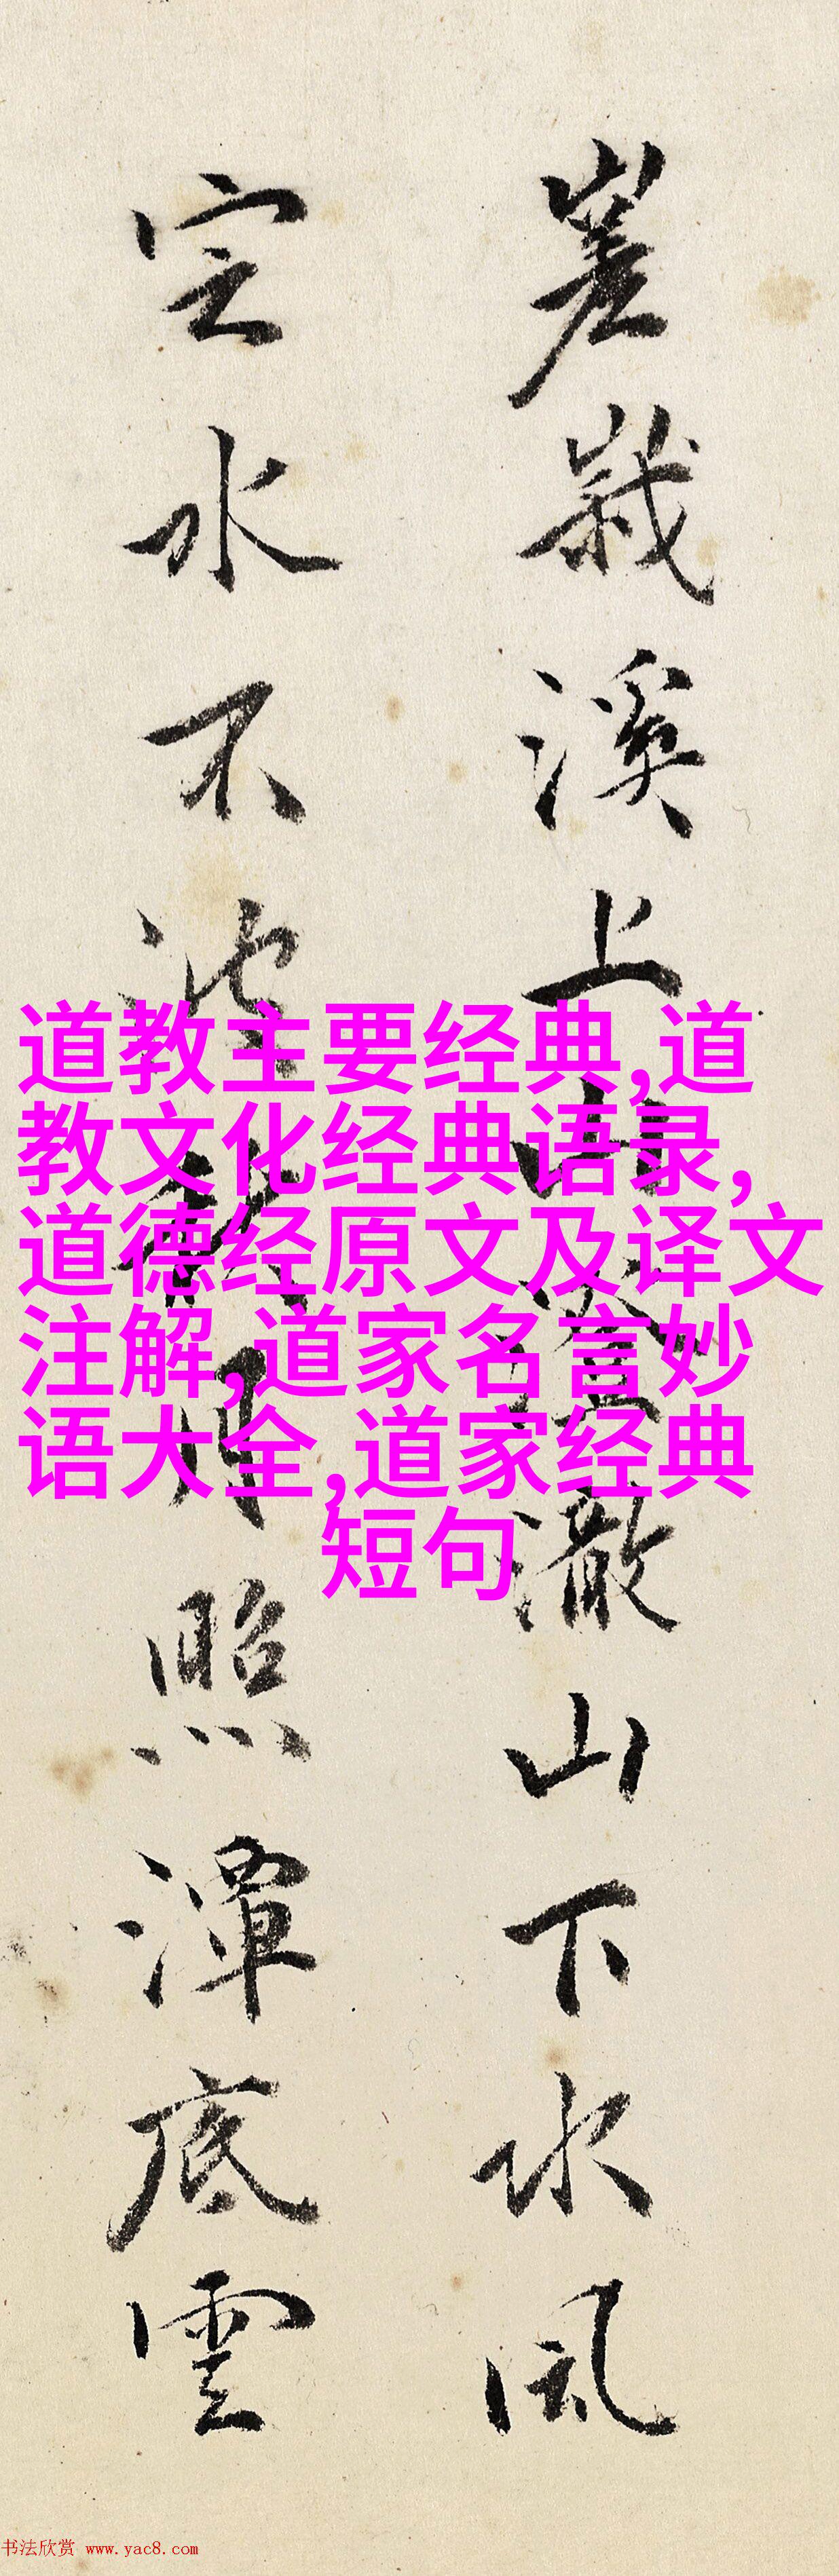 嵳峩溪上山 山下水風
定水不 月照潭底雲
道教主要经典,道
教文化经典语录,
道德经原文及译文
注解,道家名言妙
语大全,道家经典
短句
书法欣赏 www.yac8.com